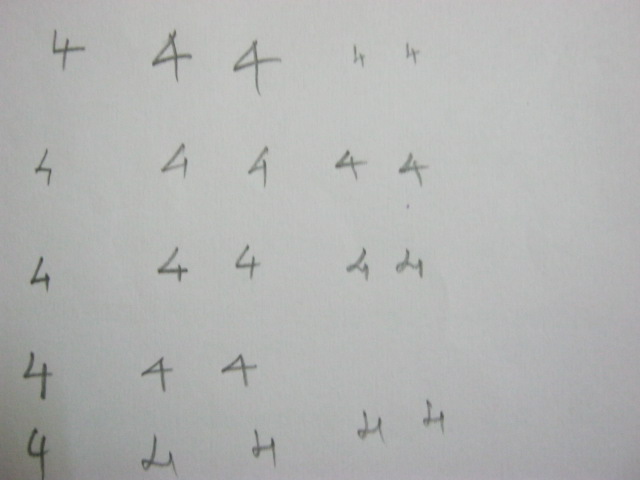 4 4 4 4 4
4 4 4 4 4
4 4 4 4 4
4 4 4
4 4 4 4 4